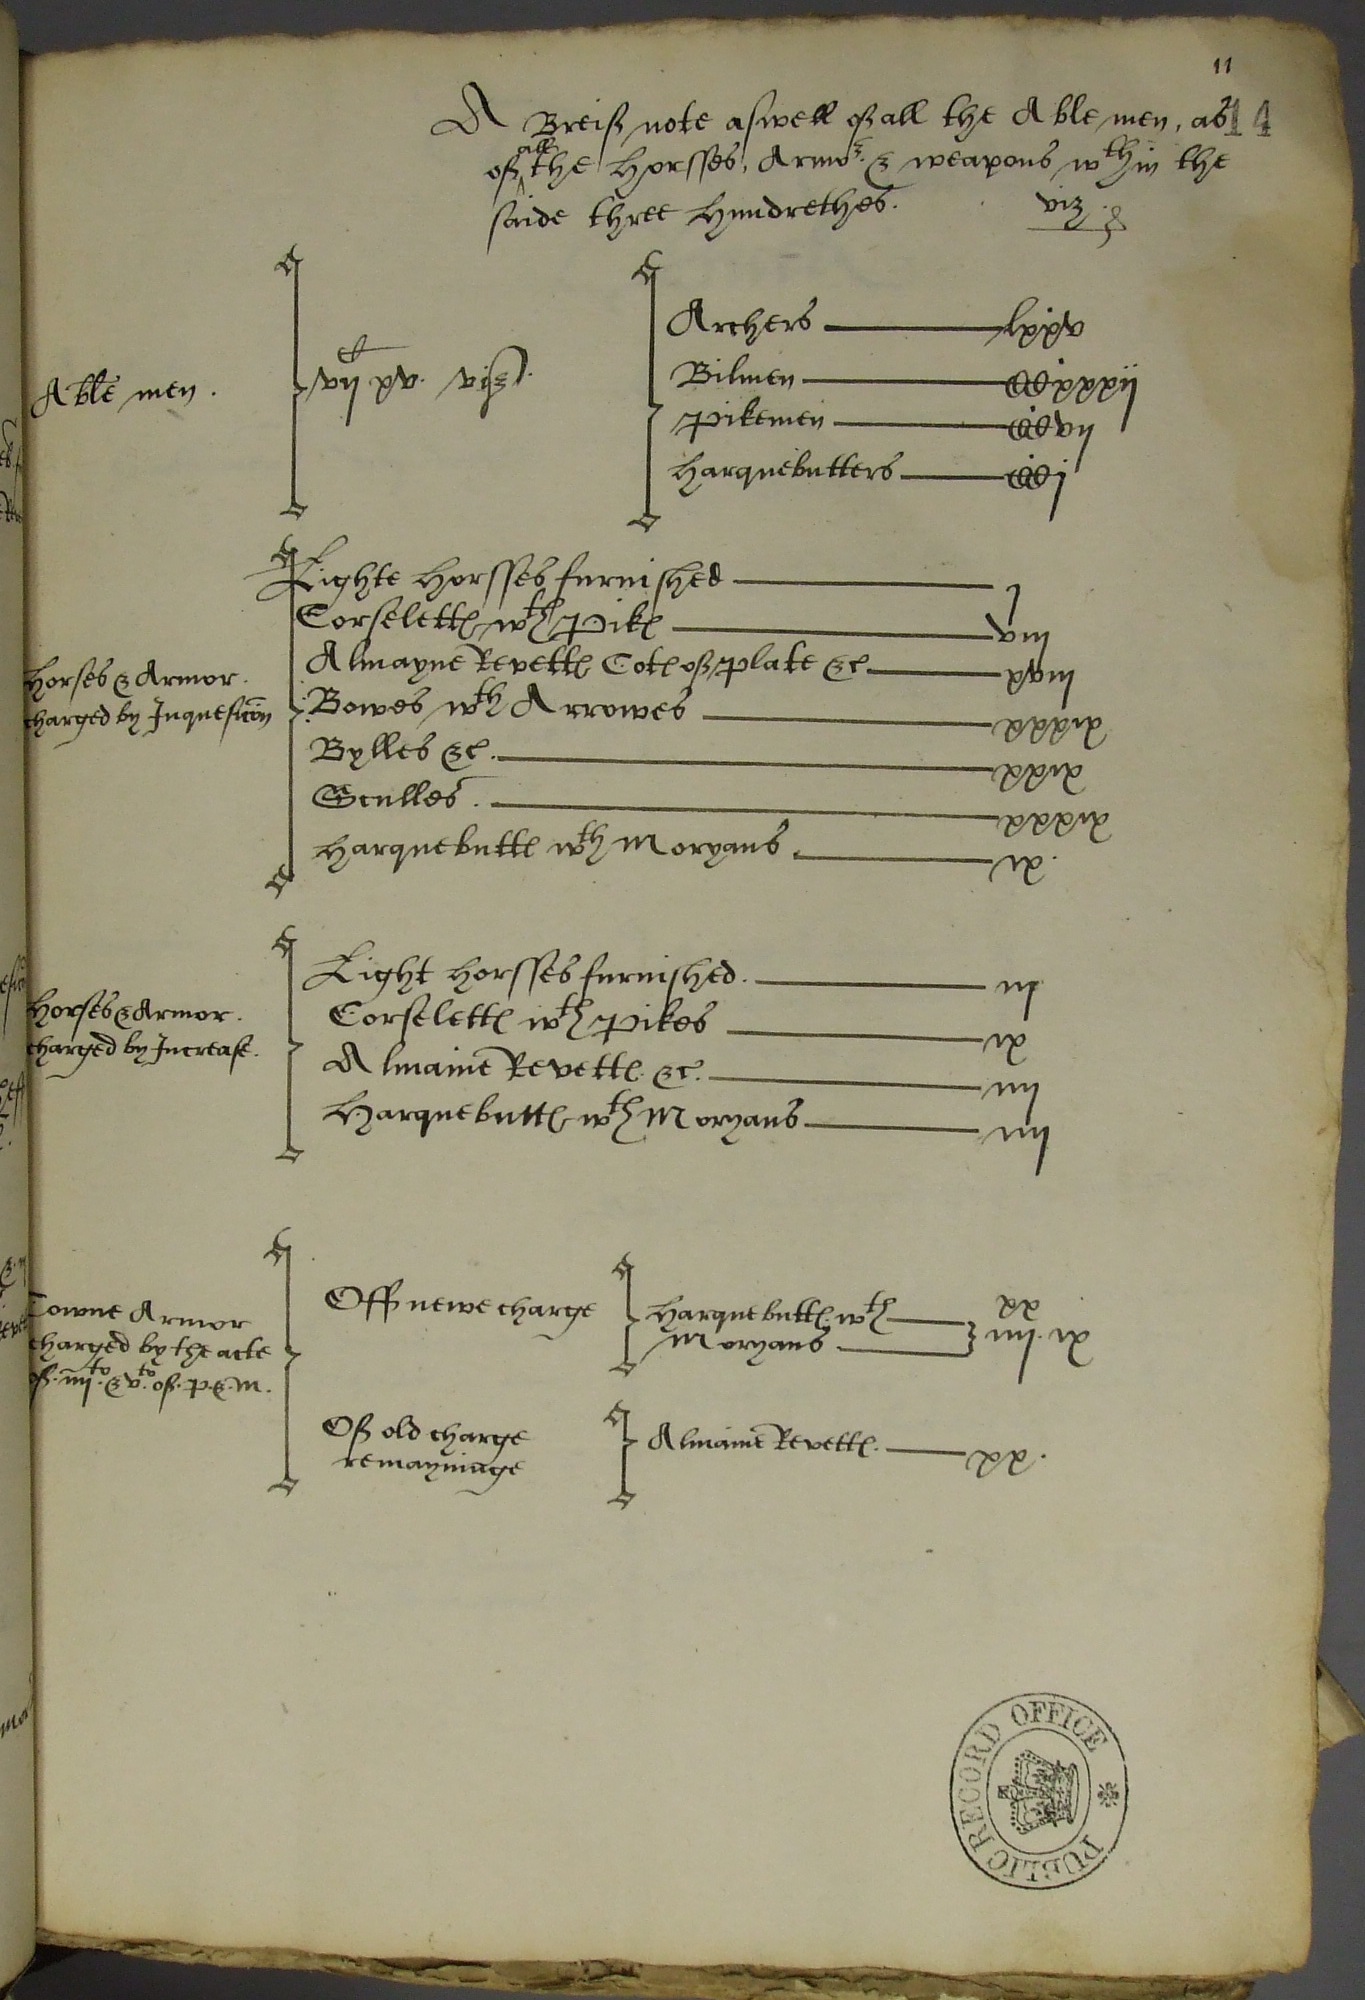 11
14
A Breif note aswell of all the Able men, as
of all the horsses, Armor & weapons wth in the
saide three hundrethes. viz.
Able men.
vij C xv. viz.
Archers — lxxv
Bilmen — CCxxxij
Pikemen — CCvij
Harquebutters — CCj
Horses & Armor.
charged by Inquesicon
Lighte horsses furnished — j
Corselettes wth Pikes — viij
Almayne Revettes Cotes of plate &c — xviij
Bowes wth Arrowes — xxxix
Bylles &c. — xxix
Sculles. — xxxix
Harquebuttes wth Moryans — ix.
Horses & Armor.
charged by Increase.
Light horsses furnished. — iij
Corselettes wth Pikes — ix
Almaine Revettes. &c. — iiij
Harquebuttes wth Moryans — iiij
Towne Armor
charged by the acte
of. iiijto. & vto. of. P. & M.
Off newe charge
Harquebuttes. wth
Moryans — iiij xx ix
Of old charge
remayninge
Almaine Revettes. — xx.
PUBLIC RECORD OFFICE